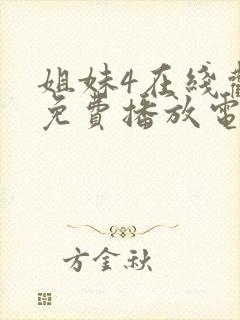 姐妹4在线
免費播放電
方金秋